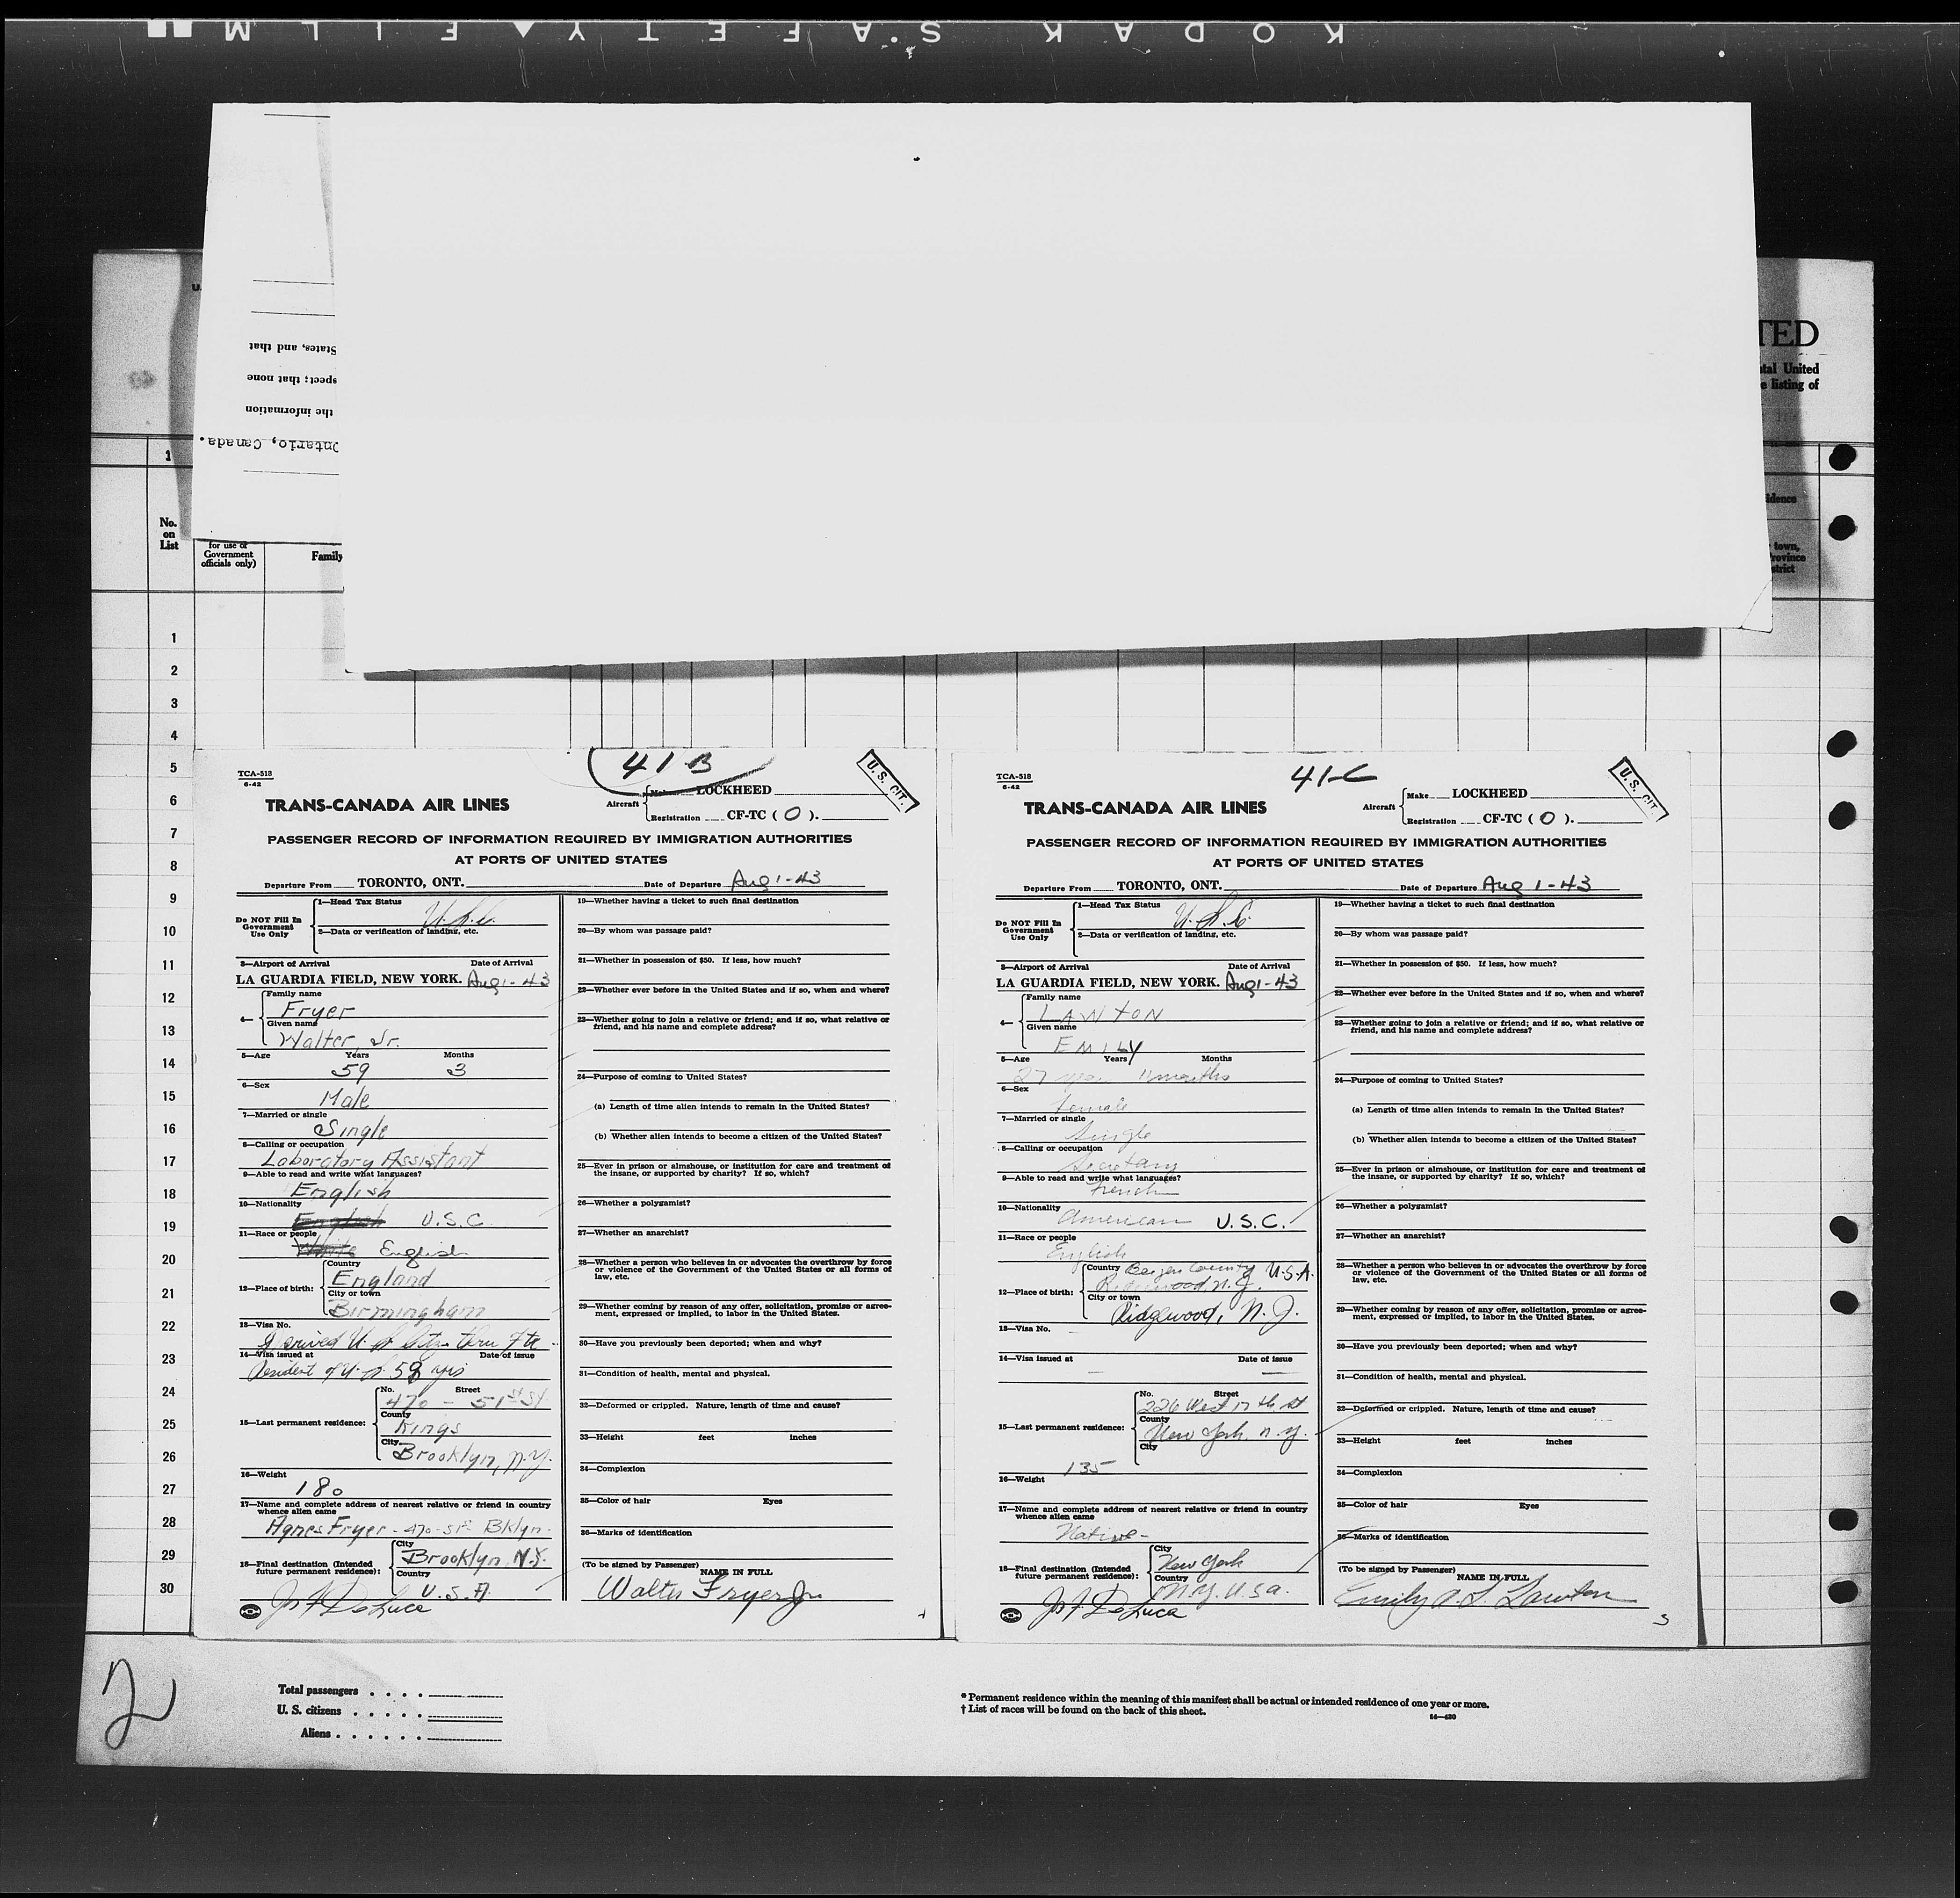 KODAK SAFETY FILM
States, and that
spect; that none
the information
Ontario, Canada.
TED
tal United
e listing of
1
No.
on
List
for use of
Government
officials only)
Family
idence
town,
rovince
strict
1
2
3
4
5
6
7
8
9
10
11
12
13
14
15
16
17
18
19
20
21
22
23
24
25
26
27
28
29
30
41 B
TCA-518
6-42
U. S. CIT.
TRANS-CANADA AIR LINES
Aircraft
Make LOCKHEED
Registration CF-TC ( O ).
PASSENGER RECORD OF INFORMATION REQUIRED BY IMMIGRATION AUTHORITIES
AT PORTS OF UNITED STATES
Departure From TORONTO, ONT. Date of Departure Aug 1-43
Do NOT Fill In
Government
Use Only
1—Head Tax Status
U.S.C.
2—Data or verification of landing, etc.
3—Airport of Arrival Date of Arrival
LA GUARDIA FIELD, NEW YORK. Aug 1-43
4—
Family name
Fryer
Given name
Walter, Jr.
5—Age Years Months
59 3
6—Sex
Male
7—Married or single
Single
8—Calling or occupation
Laboratory Assistant
9—Able to read and write what languages?
English
10—Nationality
English U.S.C.
11—Race or people
White English
12—Place of birth:
Country
England
City or town
Birmingham
13—Visa No.
derived U.S. citz. thru Ftr
14—Visa issued at Date of issue
Resident of U.S. 58 yrs
15—Last permanent residence:
No. Street
470 - 51st St
County
Kings
City
Brooklyn, N.Y.
16—Weight
180
17—Name and complete address of nearest relative or friend in country
whence alien came
Agnes Fryer - 470-51st Bklyn.
18—Final destination (Intended
future permanent residence):
City
Brooklyn, N.Y.
Country
U.S.A.
Js F DeLuca
19—Whether having a ticket to such final destination
20—By whom was passage paid?
21—Whether in possession of $50. If less, how much?
22—Whether ever before in the United States and if so, when and where?
23—Whether going to join a relative or friend; and if so, what relative or
friend, and his name and complete address?
24—Purpose of coming to United States?
(a) Length of time alien intends to remain in the United States?
(b) Whether alien intends to become a citizen of the United States?
25—Ever in prison or almshouse, or institution for care and treatment of
the insane, or supported by charity? If so, which?
26—Whether a polygamist?
27—Whether an anarchist?
28—Whether a person who believes in or advocates the overthrow by force
or violence of the Government of the United States or all forms of
law, etc.
29—Whether coming by reason of any offer, solicitation, promise or agree-
ment, expressed or implied, to labor in the United States.
30—Have you previously been deported; when and why?
31—Condition of health, mental and physical.
32—Deformed or crippled. Nature, length of time and cause?
33—Height feet inches
34—Complexion
35—Color of hair Eyes
36—Marks of identification
(To be signed by Passenger)
NAME IN FULL
Walter Fryer Jr
41-C
TCA-518
6-42
U. S. CIT.
TRANS-CANADA AIR LINES
Aircraft
Make LOCKHEED
Registration CF-TC ( O ).
PASSENGER RECORD OF INFORMATION REQUIRED BY IMMIGRATION AUTHORITIES
AT PORTS OF UNITED STATES
Departure From TORONTO, ONT. Date of Departure Aug 1-43
Do NOT Fill In
Government
Use Only
1—Head Tax Status
U.S.C.
2—Data or verification of landing, etc.
3—Airport of Arrival Date of Arrival
LA GUARDIA FIELD, NEW YORK. Aug 1-43
4—
Family name
LAWTON
Given name
EMILY
5—Age Years Months
27 years 11 months
6—Sex
female
7—Married or single
Single
8—Calling or occupation
Secretary
9—Able to read and write what languages?
French
10—Nationality
American U.S.C.
11—Race or people
English
12—Place of birth:
Country Bergen County U.S.A.
Ridgewood N.J.
City or town
Ridgewood, N.J.
13—Visa No.
14—Visa issued at Date of issue
15—Last permanent residence:
No. Street
226 West 17th St
County
New York, N.Y.
City
135
16—Weight
17—Name and complete address of nearest relative or friend in country
whence alien came
Native -
18—Final destination (Intended
future permanent residence):
City
New York
Country
N.Y. U.S.A.
Js F DeLuca
19—Whether having a ticket to such final destination
20—By whom was passage paid?
21—Whether in possession of $50. If less, how much?
22—Whether ever before in the United States and if so, when and where?
23—Whether going to join a relative or friend; and if so, what relative or
friend, and his name and complete address?
24—Purpose of coming to United States?
(a) Length of time alien intends to remain in the United States?
(b) Whether alien intends to become a citizen of the United States?
25—Ever in prison or almshouse, or institution for care and treatment of
the insane, or supported by charity? If so, which?
26—Whether a polygamist?
27—Whether an anarchist?
28—Whether a person who believes in or advocates the overthrow by force
or violence of the Government of the United States or all forms of
law, etc.
29—Whether coming by reason of any offer, solicitation, promise or agree-
ment, expressed or implied, to labor in the United States.
30—Have you previously been deported; when and why?
31—Condition of health, mental and physical.
32—Deformed or crippled. Nature, length of time and cause?
33—Height feet inches
34—Complexion
35—Color of hair Eyes
36—Marks of identification
(To be signed by Passenger)
NAME IN FULL
Emily A. L. Lawton
3
2
Total passengers
U. S. citizens
Aliens
* Permanent residence within the meaning of this manifest shall be actual or intended residence of one year or more.
† List of races will be found on the back of this sheet.
14—430